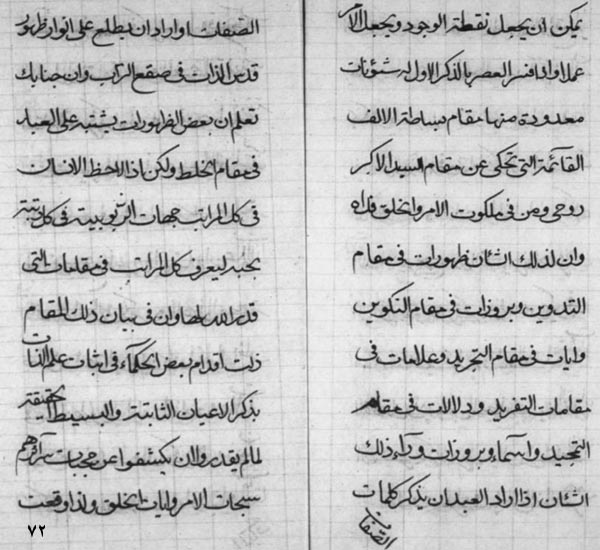 يمكن ان يجعل نقطة الوجود ويجعل الامر
عملا واذا فسر العصر بالذكر الاول له شئونات
معدودة منها مقام بساطة الالف
القائمة التي تحكي عن مقام السيد الاكبر
روحي ومن في ملكوت الامر والخلق فداه
وان لذلك الشان ظهورات في مقام
التدوين وبروزات في مقام التكوين
وايات في مقام التجريد وعلامات في
مقامات التفريد ودلالات في مقام
التمجيد واسماء وبروزات وراء ذلك
الشان اذا اراد العبد ان يذكر كلمات
الصفات
الصفات او اراد ان يطلع على انوار ظهور
قدس الذات في صقع الراتب وان جنابك
تعلم ان بعض الظهورات يشتبه على العبد
في مقام الخلط ولكن اذا لاحظ الانسان
في كل المراتب جهات الربوبية في كل رتبة
بحده ليعرف كل المراتب في مقامات التي
قدر الله لها وان في بيان ذلك المقام
ذلت اقدام بعض الحكماء في اثبات علم الذات
بذكر الاعيان الثابتة والبسيط الحقيقة
لما لم يقدروا ان يكشفوا عن حجبات سرائرهم
سبحات الامر وايات الخلق ولذا وقعت
٧٢